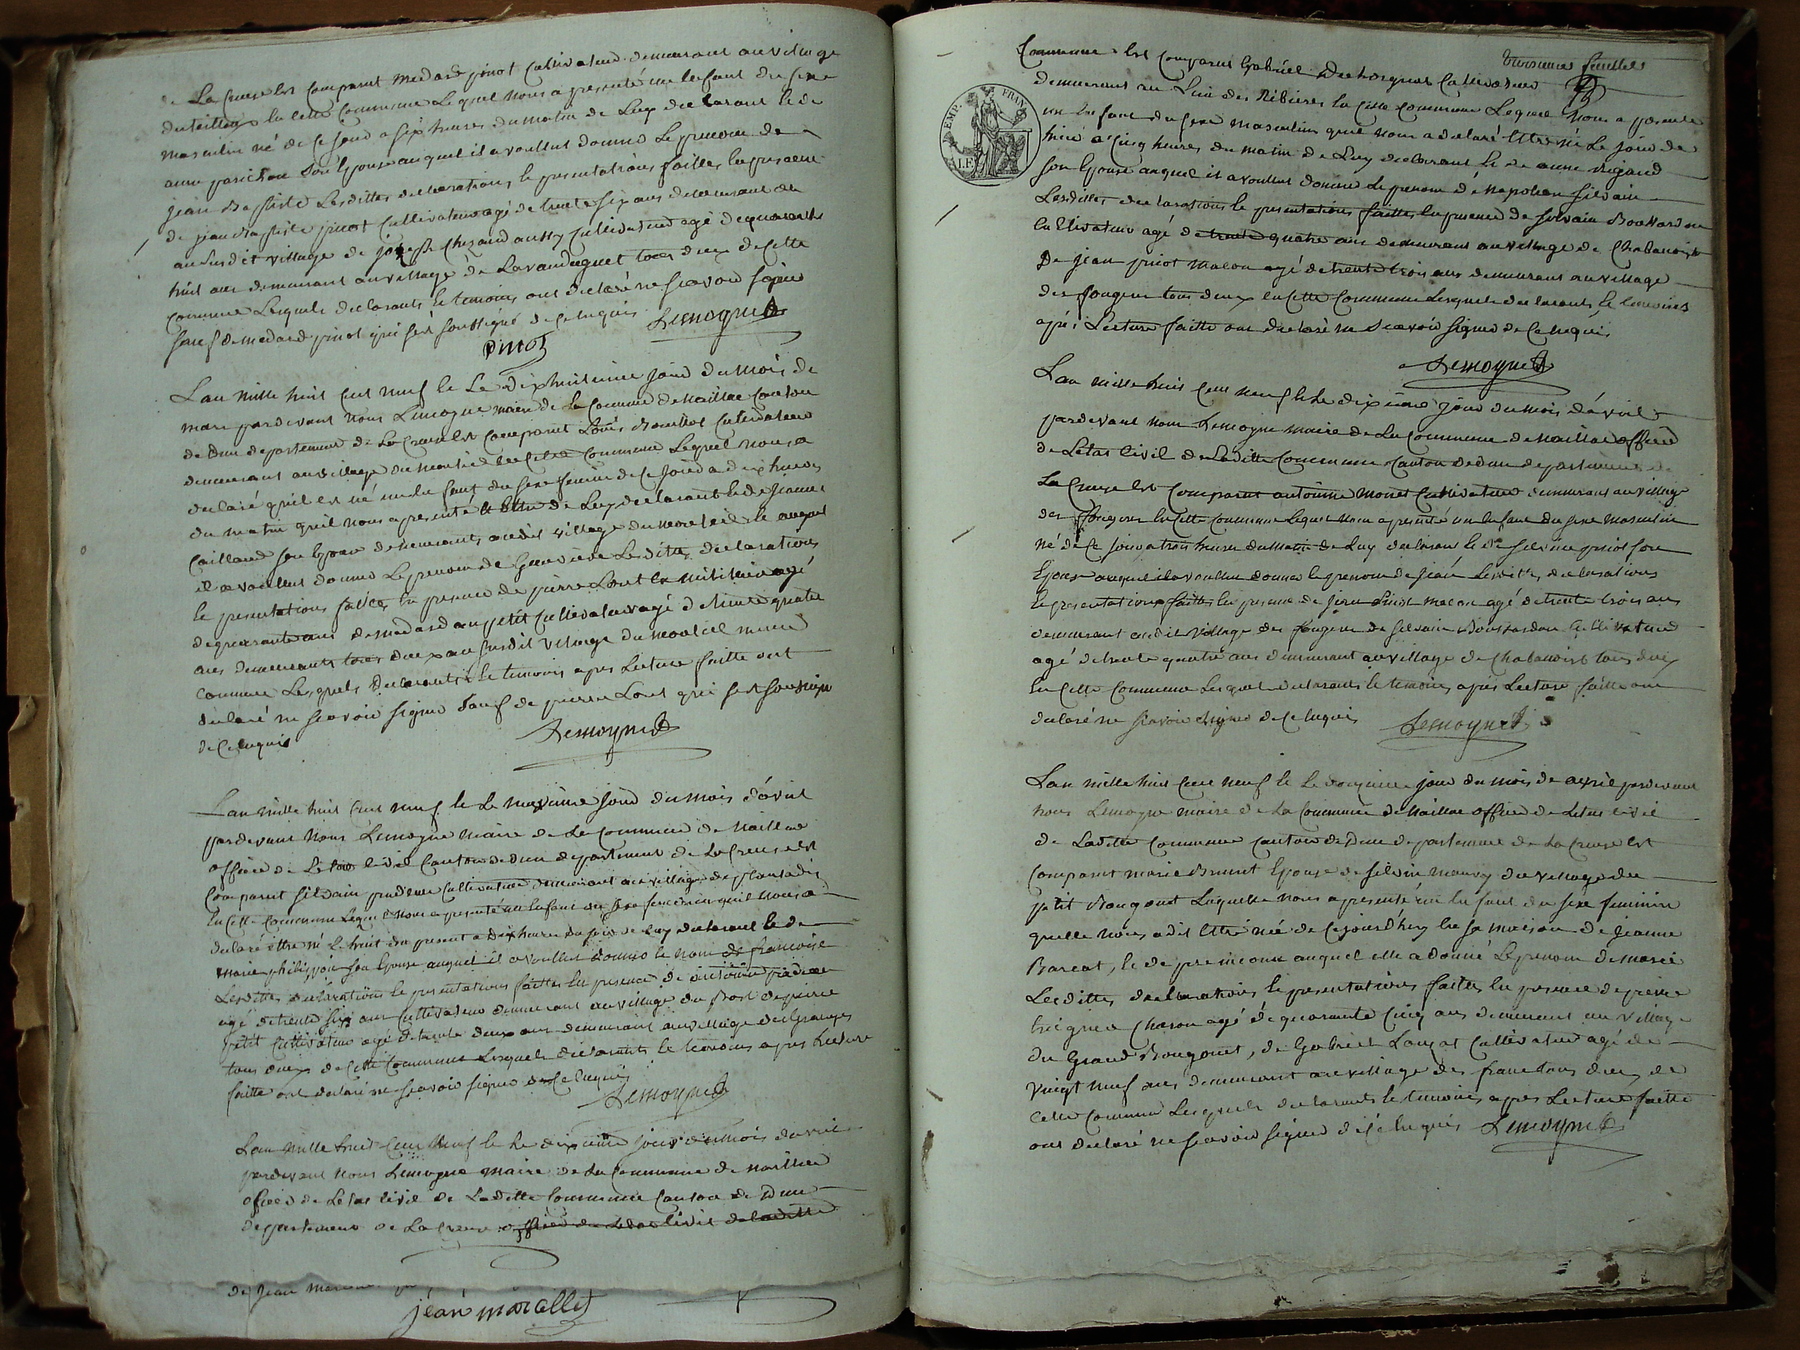 de La Creuse Est Comparut medard pinot Cultivateur demeurant au village
du teillou En Cette Commune Lequel nous a presenté un Enfant du sexe
masculin né de Ce jour a six heures du matin de Luy declarant Et de
anne parichon son Epouse auquel il a voullut donner Le prenom de
jean Baptiste Lesdittes declarations Et presentations faittes En presence
de jean Baptiste pinot Cultivateur agé de trente six ans demeurant
au susdit village de joseph Chezaud aussy Cultivateur agé de quarante
huit ans demeurant au village de Lavauduguet tous deux de Cette
Commune Lesquels declarants Et temoins ont declaré ne scavoir signer
sauf de medard pinot qui s'est soussigné de Ce Enquis Lemoyne
pinot
Lan mille huit Cent neuf Et Le dix huitieme jour du mois de
mars pardevant nous Lemoyne maire de La Commune de Naillac Canton
de Dun departement de La Creuse Est Comparut Louis Cultivateur
demeurant au village du monteil En Cette Commune Lequel nous a
declaré qu'il Est né un Enfant du sexe feminin de Ce jour a dix heures
du matin qu'il nous a presenté Et Etre de Luy declarant Et de jeanne
Caillaud son Epouse demeurants audit village du monteil Et auquel
il a voullut donner Le prenom de Genevieve Lesdittes declarations
Et presentations faittes En presence de pierre Lont Ex militaire agé
de quarante ans de medard au petit Cultivateur agé de trente quatre
ans demeurants tous deux au susdit village du monteil meme
Commune Lesquels declarants Et temoins apres Lecture faitte ont
declaré ne scavoir signer sauf de pierre Lont qui s'est soussigné
de Ce Enquis Lemoyne
Lan mille huit Cent neuf Et Le neuvieme jour du mois d'avril
pardevant nous Lemoyne maire de La Commune de Naillac
officier de Letat Civil Canton de Dun departement de La Creuse Est
Comparut silvain Cultivateur demeurant au village de plantadis
En Cette Commune Lequel nous a presenté un Enfant du sexe feminin qu'il nous a
declaré Ettre né Le huit du present a dix heures du soir de Luy declarant Et de
marie philippon son Epouse auquel il a voullut donner Le nom de francoise
Lesdittes declarations Et presentations faittes En presence de antoine
agé de trente six ans Cultivateur demeurant au village du Bost de pierre
petit Cultivateur agé de trente deux ans demeurant au village des Granges
tous deux de Cette Commune Lesquels declarants Et temoins apres Lecture
faitte ont declaré ne scavoir signer de Ce Enquis Lemoyne
Lan mille huit Cent neuf Et Le dixieme jour du mois davril
pardevant nous Lemoyne maire de La Commune de Naillac
officier de Letat Civil de Laditte Commune Canton de Dun
departement de La Creuse officier de Letat Civil de Laditte
de jean
jean marcellot
troisieme feuillet
Commune Est Comparut Gabriel Cultivateur
demeurant au Lieu des Ribieres En Cette Commune Lequel nous a presenté
un Enfant du sexe masculin qu'il nous a declaré Ettre né Le jour de
hier a Cinq heures du matin de Luy declarant Et de anne Rigaud
son Epouse auquel il a voullut donner Le prenom de Napoleon silvain
Lesdittes declarations Et presentations faittes En presence de silvain Boussardon
Cultivateur agé de trente quatre ans demeurant au village de Chabannois
De jean pinot macon agé de trente trois ans demeurant au village
des fougeres tous deux En Cette Commune Lesquels declarants Et temoins
apres Lecture faitte ont declaré ne Scavoir signer de Ce Enquis
Lemoyne
Lan mille huit Cent neuf Et Le dixieme jour du mois d'avril
pardevant nous Lemoyne maire de La Commune de Naillac officier
de Letat Civil de Laditte Commune Canton de Dun departement de
La Creuse Est Comparut antoinne Cultivateur demeurant au village
des fougeres En Cette Commune Lequel nous a presenté un Enfant du sexe masculin
né de Ce jour a trois heures du matin de Luy declarant Et de silvine pinot son
Epouse auquel il a voullut donner Le prenom de jean Lesdittes declarations
Et presentations faittes En presence de jean pinot macon agé de trente trois ans
demeurant audit village des fougeres de silvain Boussardon Cultivateur
agé de trente quatre ans demeurant au village de Chabannois tous deux
En Cette Commune Lesquels declarants Et temoins apres Lecture faitte ont
declaré ne scavoir signer de Ce Enquis Lemoyne
Lan mille huit Cent neuf Et Le douzieme jour du mois de avril pardevant
nous Lemoyne maire de La Commune de Naillac officier de Letat Civil
de Laditte Commune Canton de Dun departement de La Creuse Est
Comparut marie Brunet Epouse de silvin du village du
petit Bougouet Laquelle nous a presenté un Enfant du sexe feminin
quelle nous a dit Ettre née de Cejourd'huy En sa maison de jeanne
Barcat, Et de pere inconnu auquel elle a donné Le prenom de marie
Lesdittes declarations Et presentations faittes En presence de pierre
Charon agé de quarante Cinq ans demeurant au village
du Grand Bougouet, de Gabriel Cultivateur agé de
vingt neuf ans demeurant au village des tous deux de
Cette Commune Lesquels declarants Et temoins apres Lecture faitte
ont declaré ne scavoir signer de Ce Enquis Lemoyne